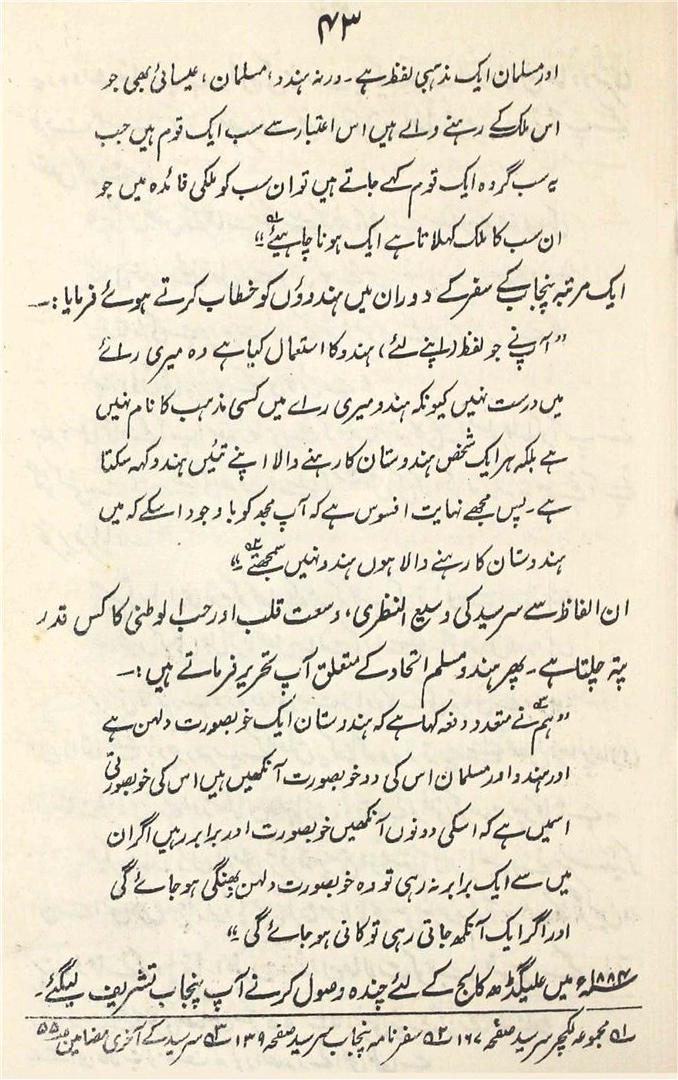 ۴۳
اور مسلمان ایک مذہبی لفظ ہے۔ ورنہ ہندو، مسلمان، عیسائی بھی جو
اس ملک کے رہنے والے ہیں اس اعتبار سے سب ایک قوم ہیں جب
یہ سب گروہ ایک قوم کہے جاتے ہیں تو ان سب کو ملکی فائدہ میں جو
ان سب کا ملک کہلاتا ہے ایک ہونا چاہیئے ۵۱"
ایک مرتبہ پنجاب کے سفر کے دوران میں ہندوؤں کو خطاب کرتے ہوئے فرمایا:۔
"آپ نے جو لفظ (اپنے لئے) ہندو کا استعمال کیا ہے وہ میری رائے
میں درست نہیں کیونکہ ہندو میری رائے میں کسی مذہب کا نام نہیں
ہے بلکہ ہر ایک شخص ہندوستان کا رہنے والا اپنے تئیں ہندو کہہ سکتا
ہے۔ پس مجھے نہایت افسوس ہے کہ آپ مجھ کو باوجود اسکے کہ میں
ہندوستان کا رہنے والا ہوں ہندو نہیں سمجھتے ۵۲"
ان الفاظ سے سرسید کی وسیع النظری، وسعت قلب اور حب الوطنی کا کس قدر
پتہ چلتا ہے۔ پھر ہندو مسلم اتحاد کے متعلق آپ تحریر فرماتے ہیں:۔
"ہم ۵۳ نے متعدد دفعہ کہا ہے کہ ہندوستان ایک خوبصورت دلہن ہے
اور ہندو اور مسلمان اس کی دو خوبصورت آنکھیں ہیں اس کی خوبصورتی
اسمیں ہے کہ اسکی دونوں آنکھیں خوبصورت اور برابر رہیں اگر ان
میں سے ایک برابر نہ رہی تو وہ خوبصورت دلہن بھینگی ہو جائے گی
اور اگر ایک آنکھ جاتی رہی تو کانی ہو جائے گی۔"
۱۸۸۴ء میں علیگڈھ کالج کے لئے چندہ وصول کرنے آپ پنجاب تشریف لیگئے۔
۵۱ مجموعہ لکچر سرسید صفحہ ۱۶۷ ۵۲ سفرنامہ پنجاب سرسید صفحہ ۱۳۹ ۵۳ سرسید کے آخری مضامین صـ ۵۵